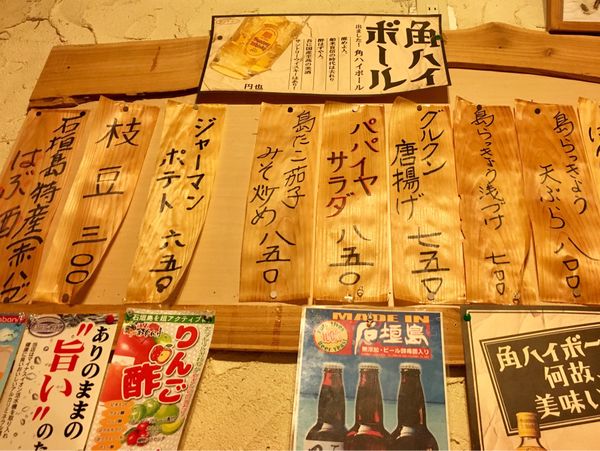 角ハイ
ボール
出ました！角ハイボール
円也
島らっきょう
天ぷら 八〇〇
島らっきょう浅づけ
七〇〇
グルクン
唐揚げ 七五〇
パパイヤ
サラダ 八五〇
島だこ茄子
みそ炒め 八五〇
ジャーマン
ポテト 六五〇
枝豆 三〇〇
石垣島特産(赤ハブ
はぶ酒
ありのままの
"旨い"のた
石垣島を超アクティブ
りんご
酢
MADE IN
石垣島
無添加・ビール酵母入り
角ハイボー
何故、
美味い